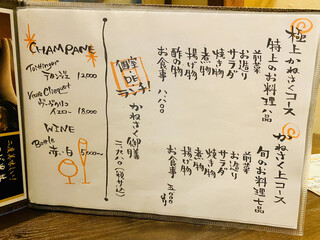 極上かねさくコース
特上のお料理八品
前菜
お造り
サラダ
焼き物
煮物
揚げ物
酢の物
お食事
八.八〇〇
かねさく上コース
旬のお料理七品
前菜
お造り
サラダ
焼き物
煮物
揚げ物
お食事
五.五〇〇
個室
DE
ランチ!
かねさく御膳
二.九八〇
CHAMPANE
Taittinger
12,000
Veuve Clicquot
イエロー 18,000
WINE
Bottle
赤・白 5,000~